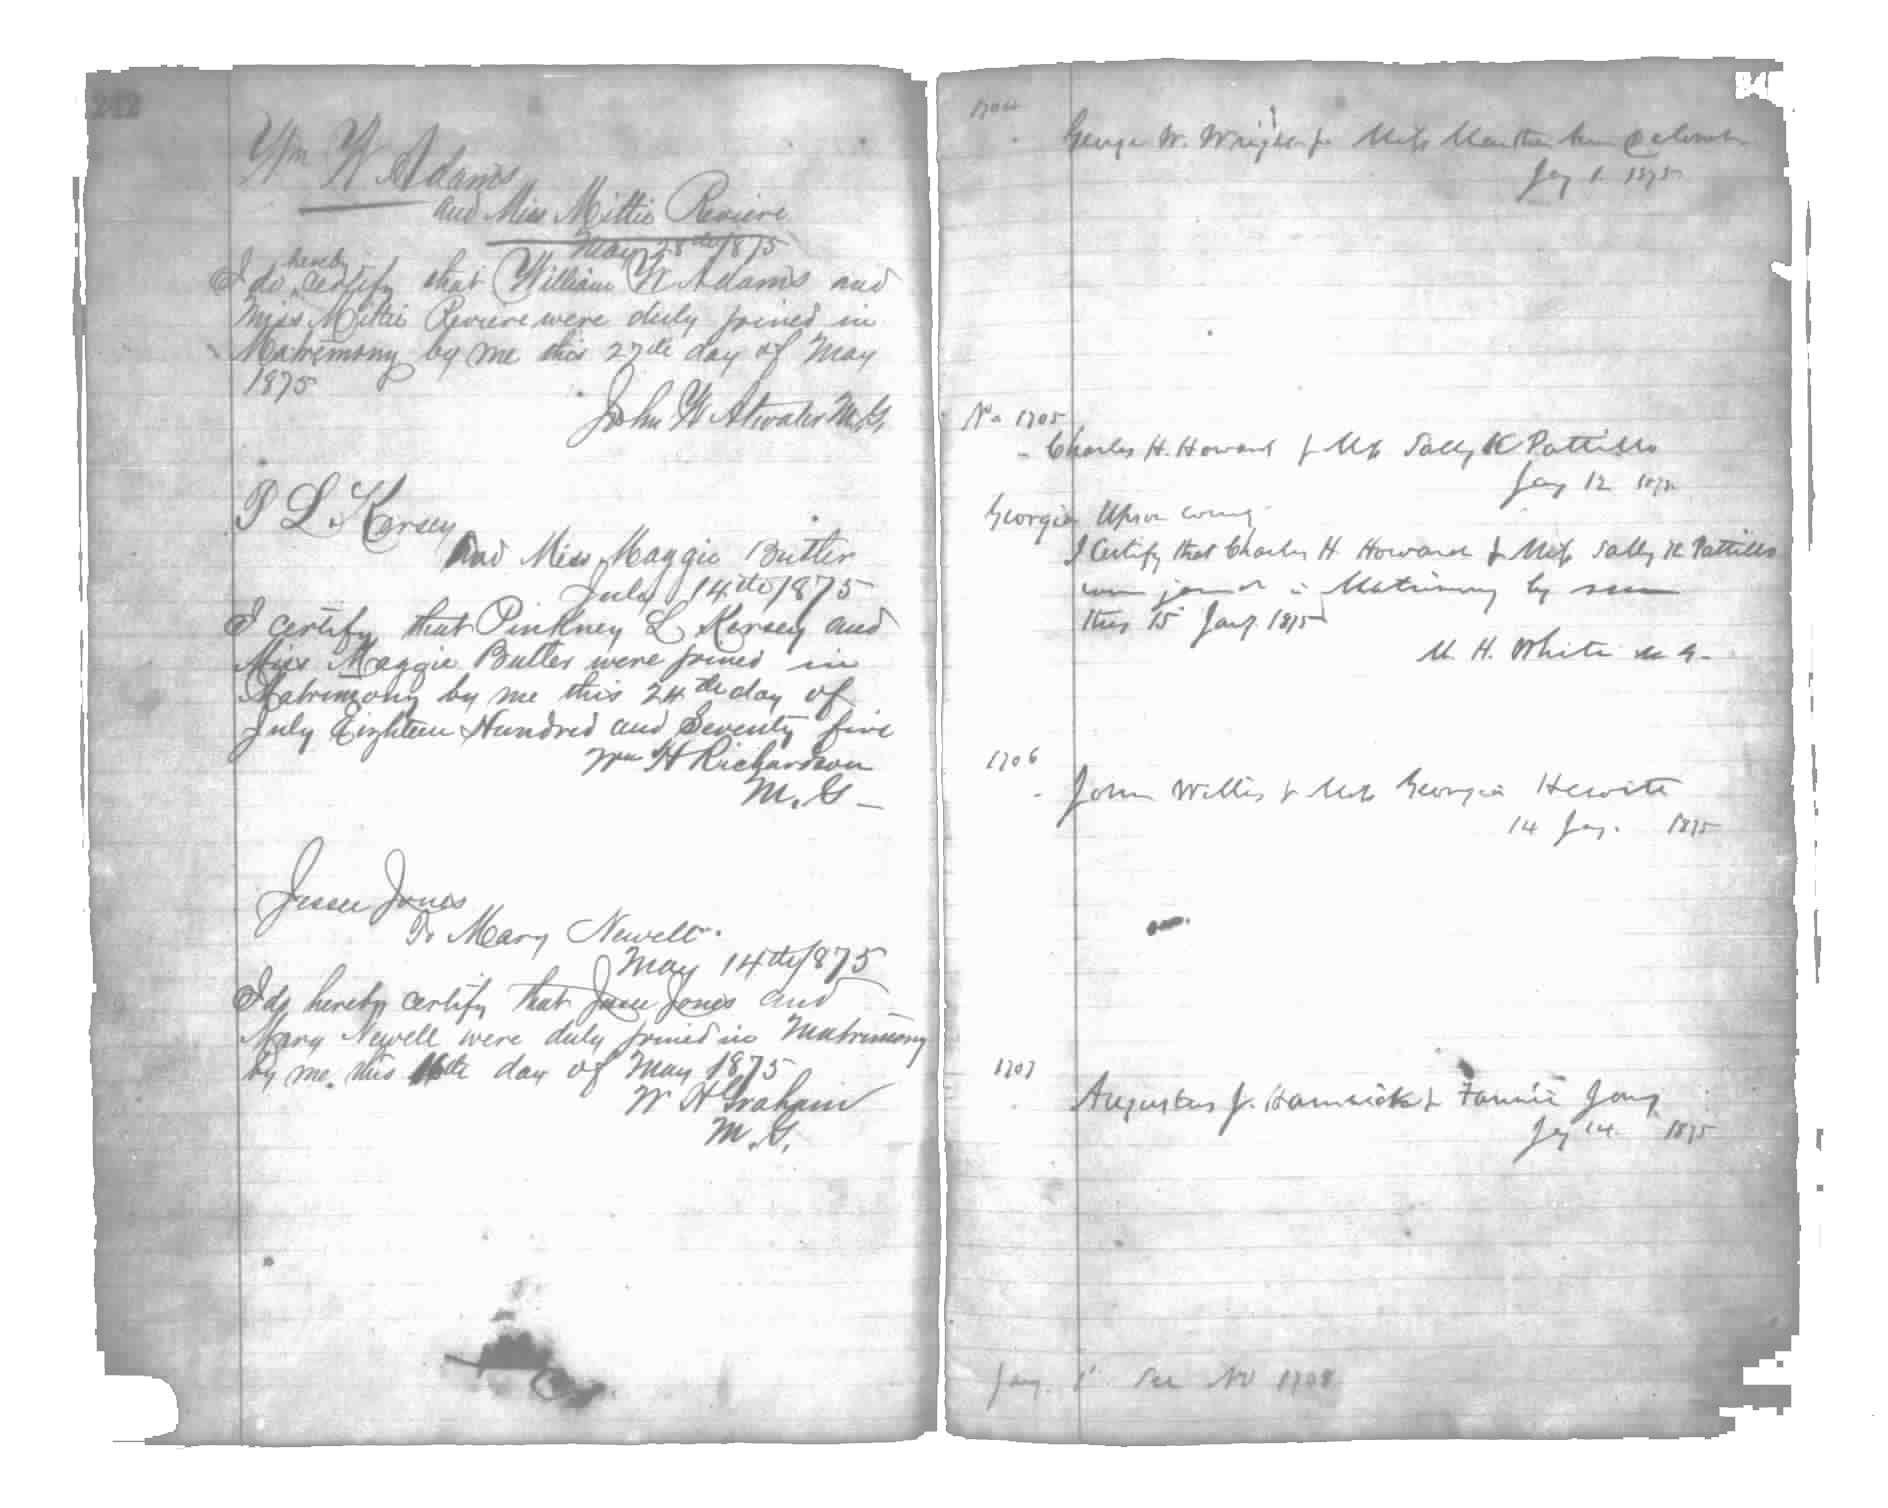 242
Wm W Adams
and Miss Mittie Reviere
May 28th 1875
I do hereby certify that William W Adams and
Miss Mittie Reviere were duly joined in
Matrimony by me this 27th day of May
1875
John W Atwater M.G.
P L Kersey
And Miss Maggie Butler
July 14th 1875
I certify that Pinkney L Kersey and
Miss Maggie Butler were joined in
Matrimony by me this 24th day of
July Eighteen Hundred and Seventy five
Wm H Richardson
M. G
Jesse Jones
To Mary Newell.
May 14th 1875
I do hereby certify that Jesse Jones and
Mary Newell were duly joined in Matrimony
by me this 16th day of May 1875
W H Graham
M. G.
1704
George W. Wright Miss
Jany 1. 1875
No 1705
Charles H. Howard & Miss Sally K Pattillo
Jany 12
Georgia Upson County
I Certify that Charles H Howard & Miss Sally K Pattillo
were joined in Matrimony by me
this 15 Jany. 1875
H. White M G.
1706
John Willis & Miss Georgia Hewitt
14 Jany. 1875
1707
Augustus J. Hamrick & Fannie
Jany 14. 1875
Jany. 1 See No 1708